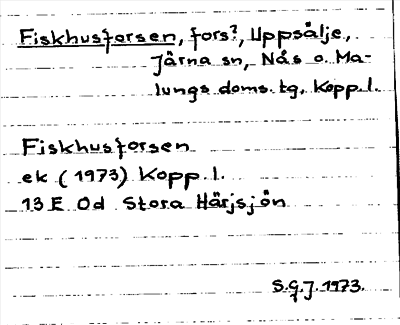 Fiskhusforsen, fors?, Uppsälje,
Järna sn, Nås o. Ma-
lungs doms. tg, Kopp.l.
Fiskhusforsen
ek (1973) Kopp.l.
13 E 0d Stora Härjsjön
S.G.J. 1973.